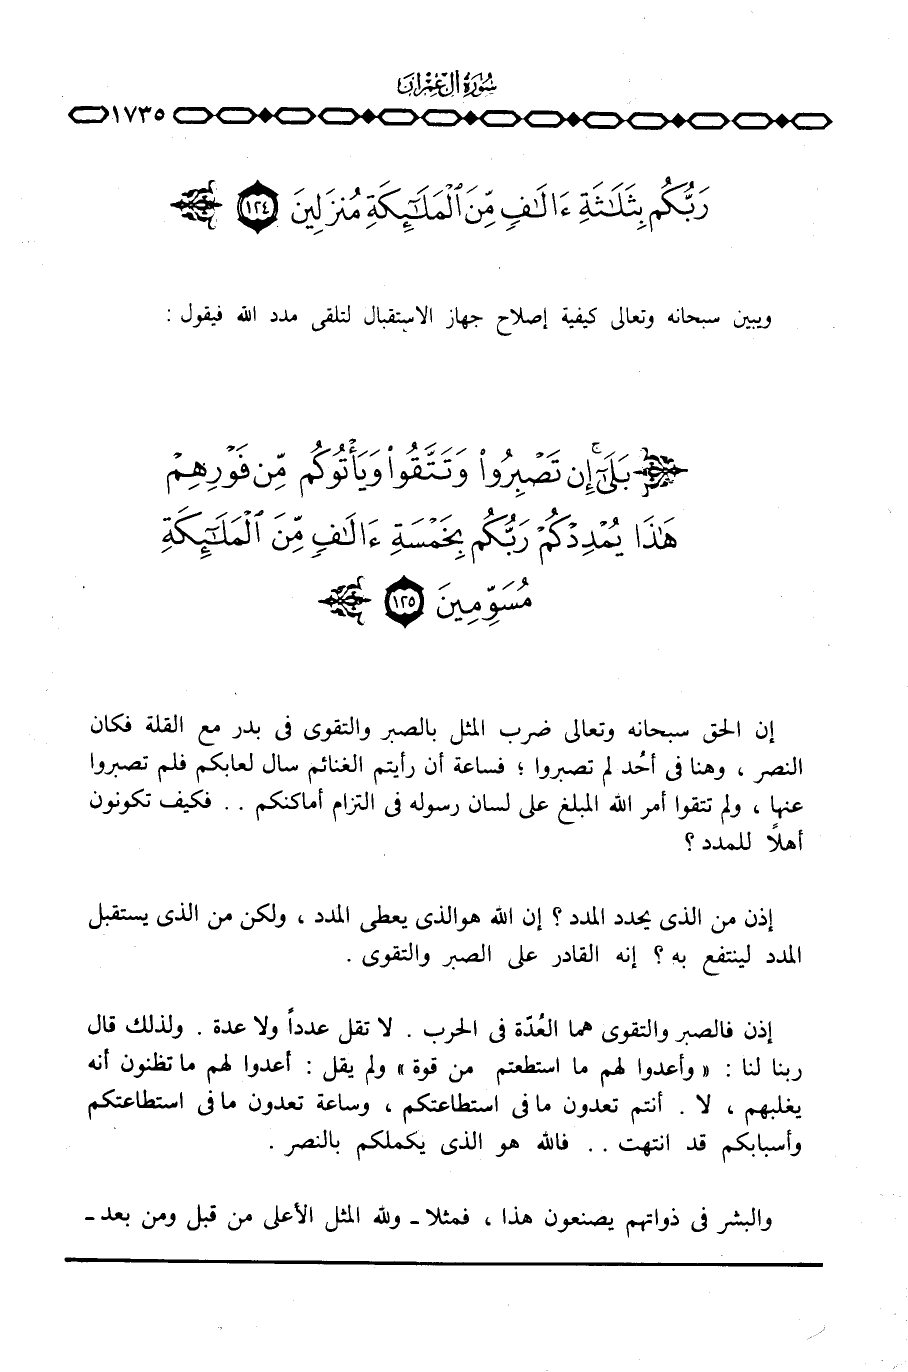 سُورَةُ آلِ عِمْرَانَ
١٧٣٥
رَبُّكُم بِثَلَٰثَةِ ءَالَٰفٍ مِّنَ ٱلْمَلَٰٓئِكَةِ مُنزَلِينَ ١٢٤
ويبين سبحانه وتعالى كيفية إصلاح جهاز الاستقبال لتلقى مدد الله فيقول :
بَلَىٰٓ ۚ إِن تَصْبِرُوا۟ وَتَتَّقُوا۟ وَيَأْتُوكُم مِّن فَوْرِهِمْ
هَٰذَا يُمْدِدْكُمْ رَبُّكُم بِخَمْسَةِ ءَالَٰفٍ مِّنَ ٱلْمَلَٰٓئِكَةِ
مُسَوِّمِينَ ١٢٥
إن الحق سبحانه وتعالى ضرب المثل بالصبر والتقوى فى بدر مع القلة فكان
النصر ، وهنا فى أُحُد لم تصبروا ؛ فساعة أن رأيتم الغنائم سال لعابكم فلم تصبروا
عنها ، ولم تتقوا أمر الله المبلغ على لسان رسوله فى التزام أماكنكم . . فكيف تكونون
أهلاً للمدد ؟
إذن من الذى يحدد المدد ؟ إن الله هوالذى يعطى المدد ، ولكن من الذى يستقبل
المدد لينتفع به ؟ إنه القادر على الصبر والتقوى .
إذن فالصبر والتقوى هما العُدّة فى الحرب . لا تقل عدداً ولا عدة . ولذلك قال
ربنا لنا : « وأعدوا لهم ما استطعتم من قوة » ولم يقل : أعدوا لهم ما تظنون أنه
يغلبهم ، لا . أنتم تعدون ما فى استطاعتكم ، وساعة تعدون ما فى استطاعتكم
وأسبابكم قد انتهت . . فالله هو الذى يكملكم بالنصر .
والبشر فى ذواتهم يصنعون هذا ، فمثلا ـ ولله المثل الأعلى من قبل ومن بعد ـ